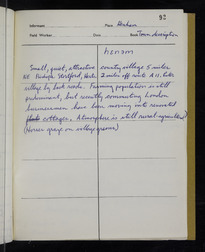 92
Informant Place Henham
Field Worker Date Book Town description
henəm
Small, quiet, attractive country village 5 miles
NE Bishops Stortford, Herts 2 miles off route A 11, lies
village by back roads. Farming population is still
predominant, but recently commuting London
businessmen have been moving into renovated
cottages. Atmosphere is still rural-agricultural
(Horses graze on village green)